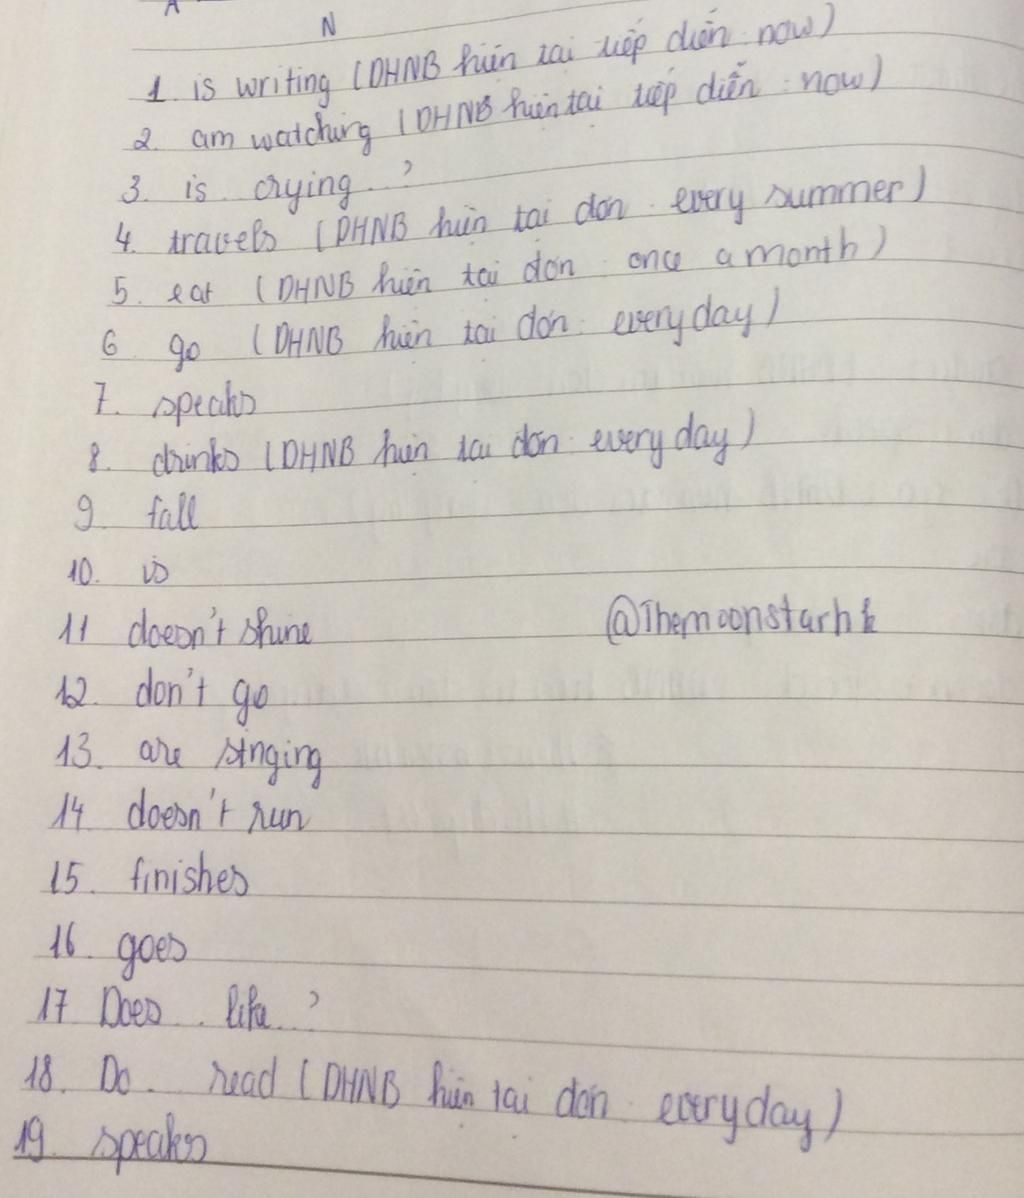 A
N
1. is writing (DHNB hiện tại tiếp diễn: now)
2. am watching (DHNB hiện tại tiếp diễn: now)
3. is crying...?
4. travels (DHNB hiện tại đơn: every summer)
5. eat (DHNB hiện tại đơn: once a month)
6 go (DHNB hiện tại đơn: everyday)
7. speaks
8. drinks (DHNB hiện tại đơn: everyday)
9 fall
10. is
11 doesn't shine
@Themoonstarhk
12. don't go
13. are singing
14 doesn't run
15. finishes
16. goes
17 Does... like...?
18. Do... read (DHNB hiện tại đơn: everyday)
19. speaks